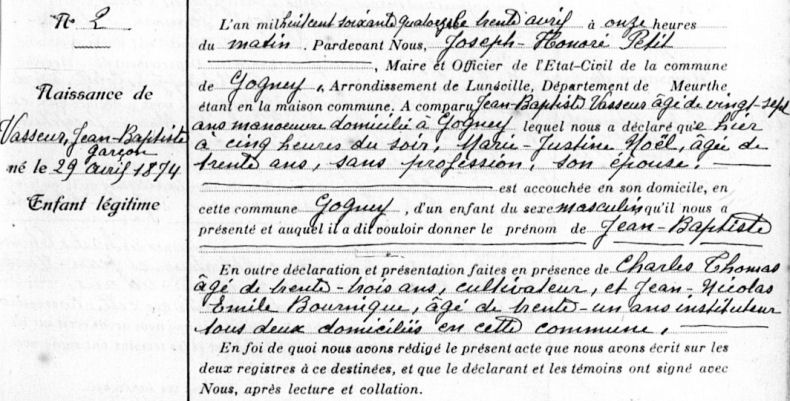 N° 2
Naissance de
Vasseur, Jean-Baptiste
garçon
né le 29 avril 1874
Enfant légitime
L'an mil huit cent soixante quatorze le trente avril à onze heures
du matin. Pardevant Nous, Joseph-Honoré Petit
, Maire et Officier de l'Etat-Civil de la commune
de Gogney, Arrondissement de Lunéville, Département de Meurthe
étant en la maison commune. A comparu Jean-Baptiste Vasseur âgé de vingt-sept
ans manoeuvre domicilié à Gogney lequel nous a déclaré que hier
à cinq heures du soir, Marie-Justine Noël, âgée de
trente ans, sans profession, son épouse,
est accouchée en son domicile, en
cette commune Gogney, d'un enfant du sexe masculin qu'il nous a
présenté et auquel il a dit vouloir donner le prénom de Jean-Baptiste
En outre déclaration et présentation faites en présence de Charles Thomas
âgé de trente-trois ans, cultivateur, et Jean-Nicolas
Emile Bournique, âgé de trente-un ans instituteur
tous deux domiciliés en cette commune,
En foi de quoi nous avons rédigé le présent acte que nous avons écrit sur les
deux registres à ce destinées, et que le déclarant et les témoins ont signé avec
Nous, après lecture et collation.